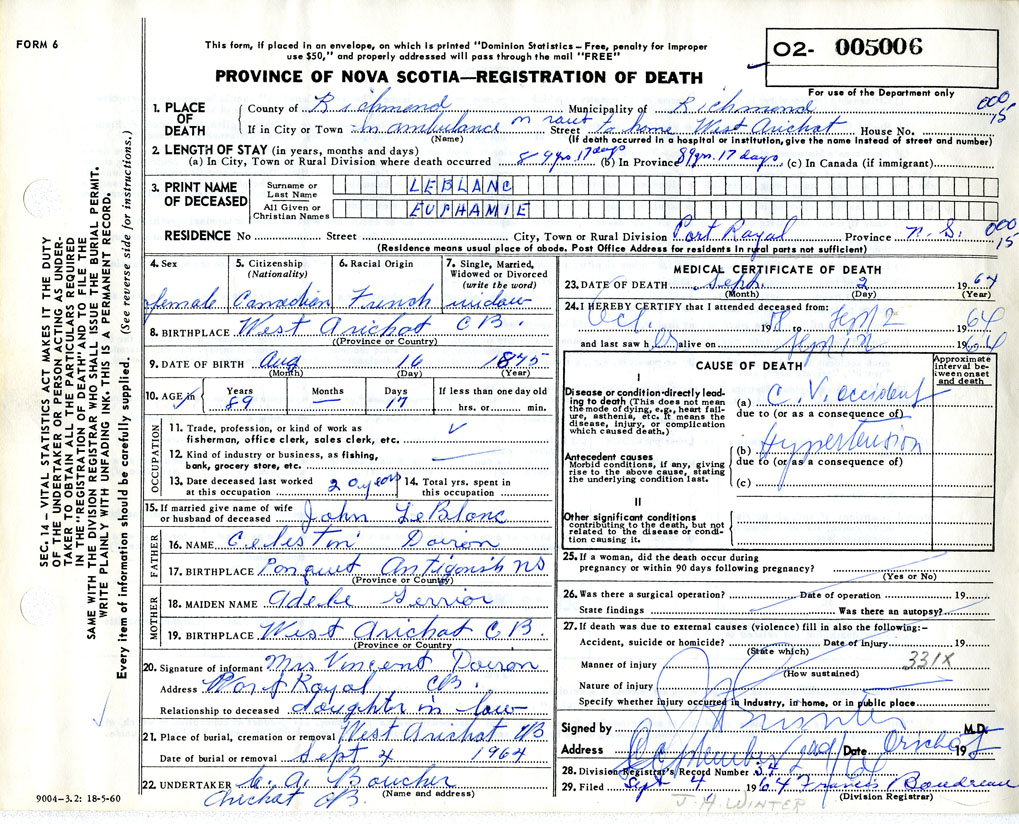 FORM 6
This form, if placed in an envelope, on which is printed "Dominion Statistics – Free, penalty for improper
use $50," and properly addressed will pass through the mail "FREE"
PROVINCE OF NOVA SCOTIA—REGISTRATION OF DEATH
02- 005006
For use of the Department only
000
15
1. PLACE OF DEATH
County of Richmond Municipality of Richmond
If in City or Town In ambulance on rout Street to home West Arichat House No.
(Name) (If death occurred in a hospital or institution, give the name instead of street and number)
2. LENGTH OF STAY (in years, months and days)
(a) In City, Town or Rural Division where death occurred 89 yrs. 17 days (b) In Province 89 yrs. 17 days. (c) In Canada (if immigrant)
3. PRINT NAME OF DECEASED
Surname or Last Name LEBLANC
All Given or Christian Names EUPHAMIE
RESIDENCE No Street City, Town or Rural Division Port Royal Province N.S.
000
15
(Residence means usual place of abode. Post Office Address for residents in rural parts not sufficient)
4. Sex
female
5. Citizenship (Nationality)
Canadian
6. Racial Origin
French
7. Single, Married, Widowed or Divorced (write the word)
widow
8. BIRTHPLACE West Arichat C B.
(Province or Country)
9. DATE OF BIRTH Aug 16 1875
(Month) (Day) (Year)
10. AGE in Years 89 Months — Days 17 If less than one day old hrs. or min.
OCCUPATION
11. Trade, profession, or kind of work as fisherman, office clerk, sales clerk, etc.
12. Kind of industry or business, as fishing, bank, grocery store, etc.
13. Date deceased last worked at this occupation 20 years
14. Total yrs. spent in this occupation
15. If married give name of wife or husband of deceased John LeBlanc
FATHER
16. NAME Celestin Doiron
17. BIRTHPLACE Ponquet Antigonish NS
(Province or Country)
MOTHER
18. MAIDEN NAME Adele Gerrior
19. BIRTHPLACE West Arichat C B.
(Province or Country)
20. Signature of informant Mrs Vincent Doiron
Address Port Royal CB.
Relationship to deceased daughter in law
21. Place of burial, cremation or removal West Arichat CB
Date of burial or removal Sept 4 1964
22. UNDERTAKER C. A. Boucher
(Name and address)
Arichat CB.
MEDICAL CERTIFICATE OF DEATH
23. DATE OF DEATH Sept. 2 1964
(Month) (Day) (Year)
24. I HEREBY CERTIFY that I attended deceased from:
Oct. 19 to Sept 2 1964
and last saw h er alive on Sept 1 1964
CAUSE OF DEATH
Approximate interval between onset and death
I
Disease or condition directly leading to death (This does not mean the mode of dying, e.g., heart failure, asthenia, etc. It means the disease, injury, or complication which caused death.)
(a) C. V. accident
due to (or as a consequence of)
Antecedent causes
Morbid conditions, if any, giving rise to the above cause, stating the underlying condition last.
(b) Hypertension
due to (or as a consequence of)
(c)
II
Other significant conditions
contributing to the death, but not related to the disease or condition causing it.
25. If a woman, did the death occur during pregnancy or within 90 days following pregnancy?
(Yes or No)
26. Was there a surgical operation? Date of operation 19
State findings Was there an autopsy?
27. If death was due to external causes (violence) fill in also the following:-
Accident, suicide or homicide? Date of injury 19
(State which)
331X
Manner of injury
(How sustained)
Nature of injury
Specify whether injury occurred in industry, in home, or in public place
Signed by M.D.
Address Date 19
28. Division Registrar's Record Number 34
29. Filed Sept 4 1964 Francis Boudreau
(Division Registrar)
J. A. WINTER
9004–3.2: 18-5-60
SEC. 14 – VITAL STATISTICS ACT MAKES IT THE DUTY
OF THE UNDERTAKER OR PERSON ACTING AS UNDERTAKER
TO OBTAIN ALL THE PARTICULARS REQUIRED
IN THE "REGISTRATION OF DEATH" AND TO FILE THE
SAME WITH THE DIVISION REGISTRAR WHO SHALL ISSUE THE BURIAL PERMIT.
WRITE PLAINLY WITH UNFADING INK. THIS IS A PERMANENT RECORD.
Every item of information should be carefully supplied. (See reverse side for instructions.)